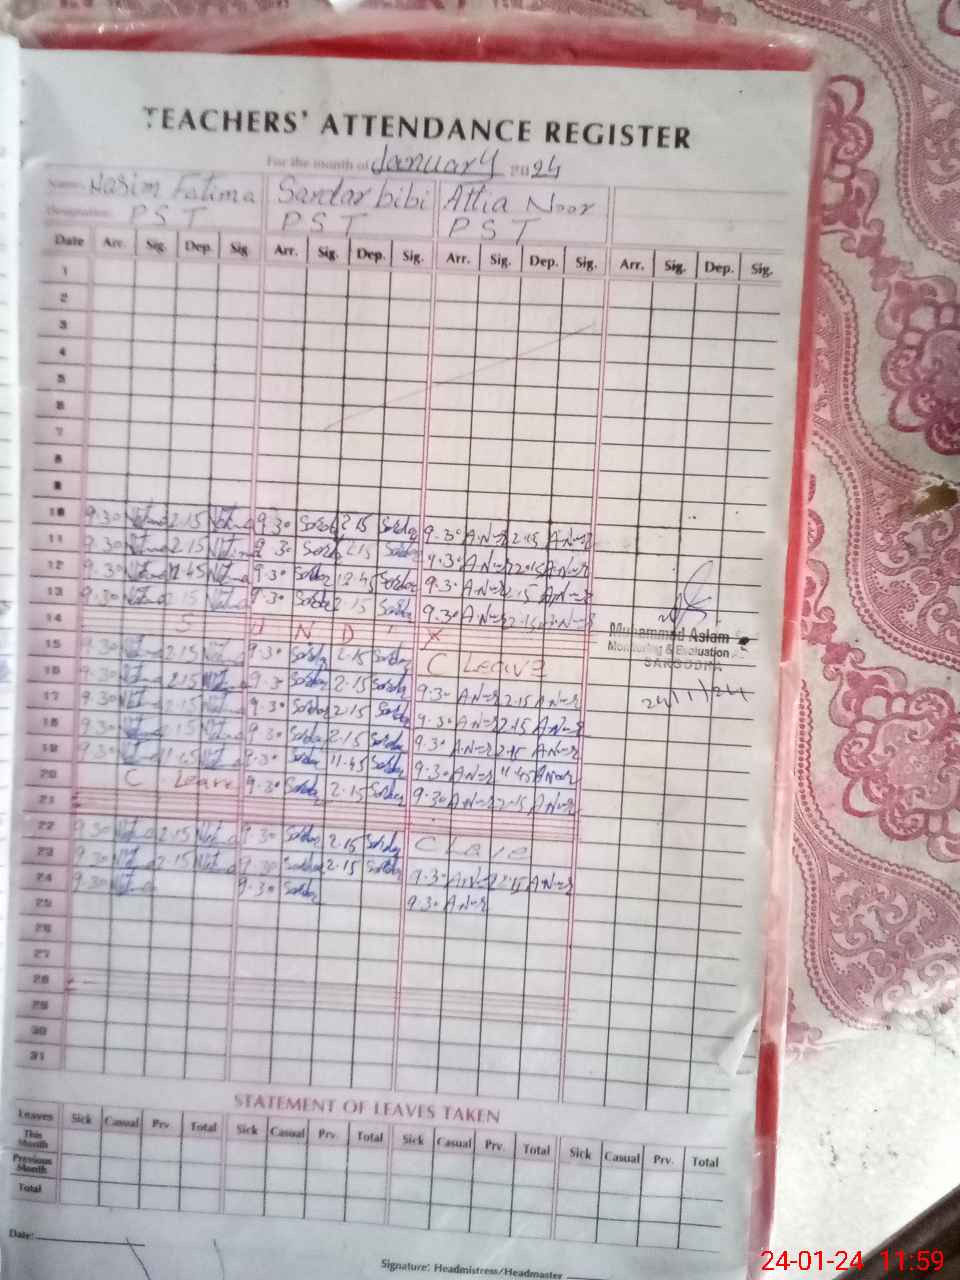 TEACHERS' ATTENDANCE REGISTER
For the month of January 2024
Name: Nasim Fatima Sardar bibi Attia Noor
Designation: PST PST PST
Date Arr. Sig. Dep. Sig. Arr. Sig. Dep. Sig. Arr. Sig. Dep. Sig. Arr. Sig. Dep. Sig.
1
2
3
4
5
6
7
8
9
10 9.30 2.15 9.30 2.15 9.30 A.Noor 2.15 A.Noor
11 9.30 2.15 9.30 2.15 9.30 A.Noor 12.15 A.Noor
12 9.30 12.45 9.30 12.45 9.30 A.Noor 2.15 A.Noor
13 9.30 2.15 9.30 2.15 9.30 A.Noor 2.15 A.Noor
14 S U N D X
Muhammad Aslam
Monitoring & Evaluation
SARGODHA
24/1/24
15 9.30 2.15 9.30 2.15 C Leave
16 9.30 2.15 9.30 2.15 9.30 A.Noor 2.15 A.Noor
17 9.30 2.15 9.30 2.15 9.30 A.Noor 2.15 A.Noor
18 9.30 2.15 9.30 2.15 9.30 A.Noor 2.15 A.Noor
19 9.30 11.45 9.30 11.45 9.30 A.Noor 11.45 A.Noor
20 C Leave 9.30 2.15 9.30 A.Noor 2.15 A.Noor
21
22 9.30 2.15 9.30 2.15 C Lave
23 9.30 2.15 9.30 2.15 9.30 A.Noor 2.15 A.Noor
24 9.30 9.30 9.30 A.Noor
25
26
27
28
29
30
31
STATEMENT OF LEAVES TAKEN
Leaves Sick Casual Prv. Total Sick Casual Prv. Total Sick Casual Prv. Total Sick Casual Prv. Total
This Month
Previous Month
Total
Date:
Signature: Headmistress/Headmaster
24-01-24 11:59